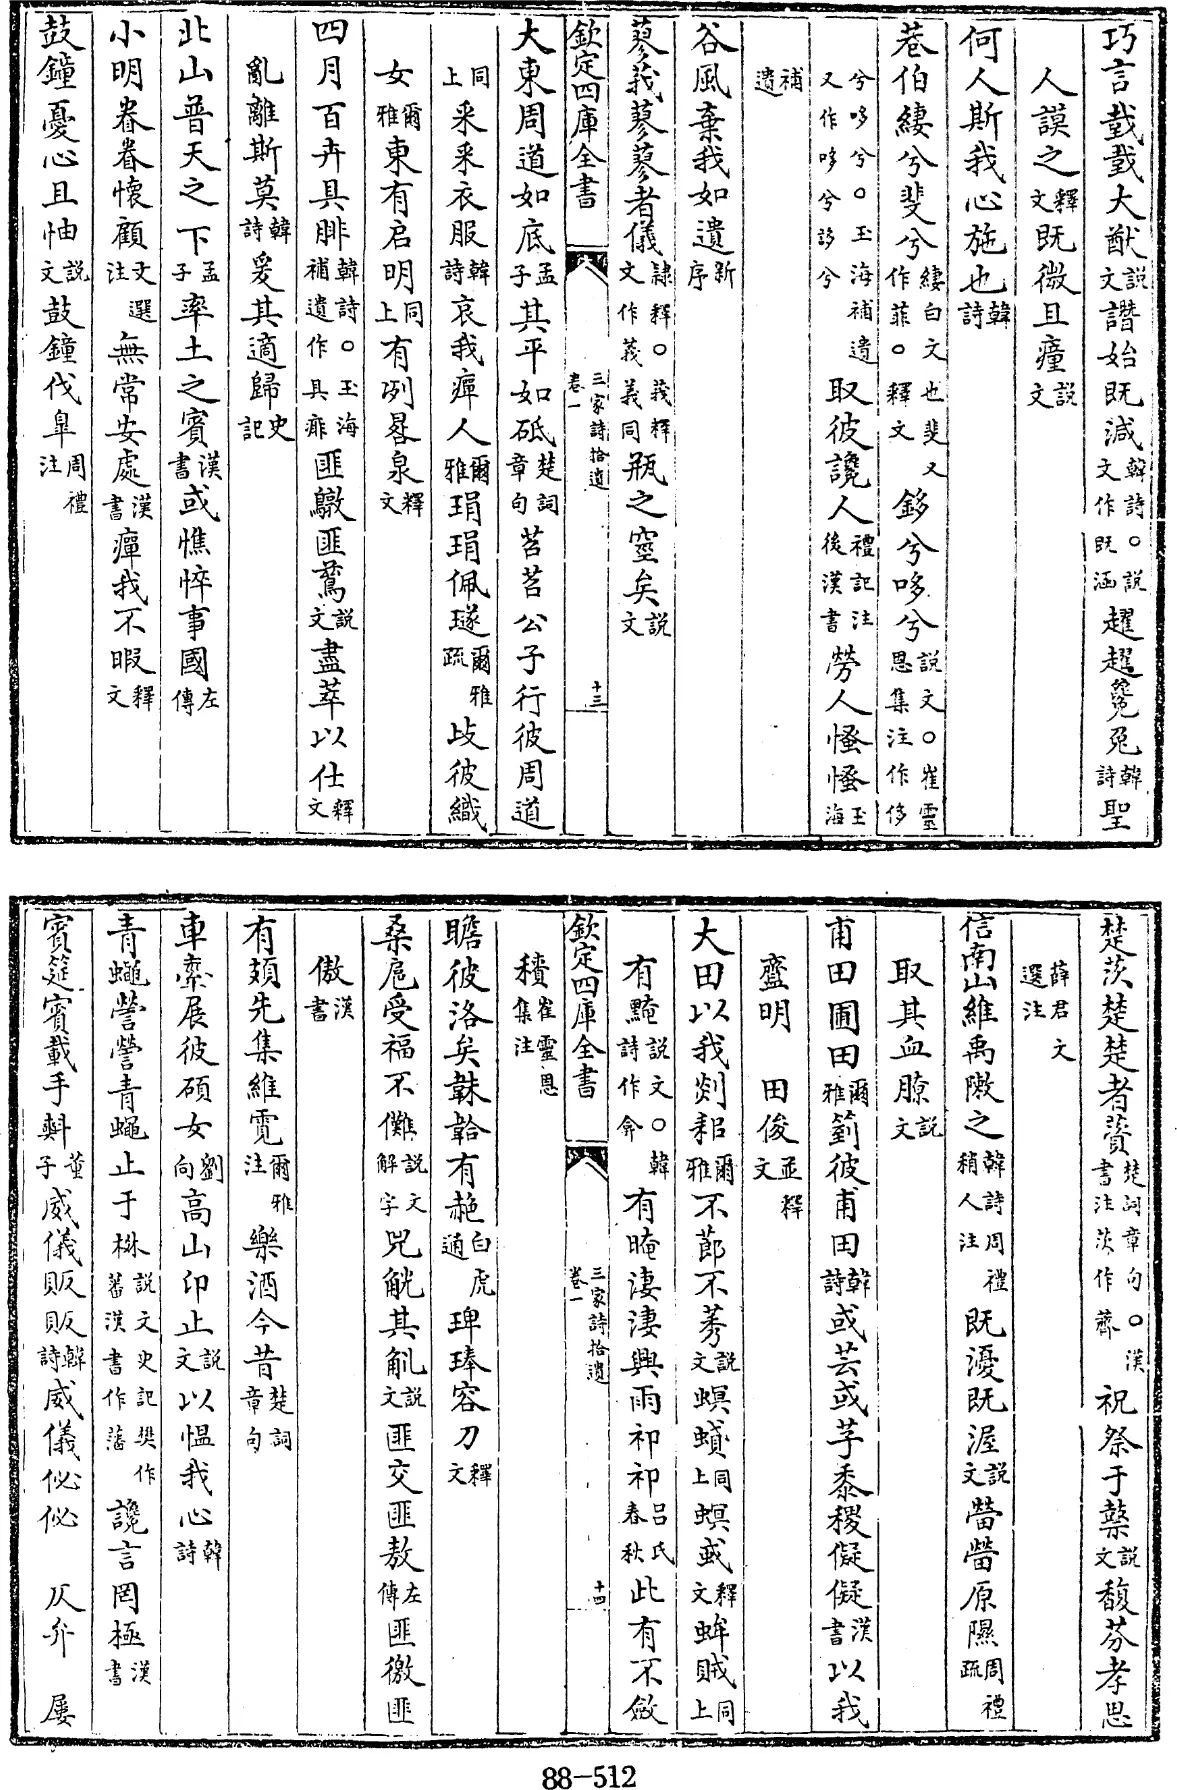 巧言戴戴大猷説文譖始既減韓詩○説文作既涵趯趯毚兎韓詩聖
人謨之釋文既微且瘇説文
何人斯我心施也韓詩
巷伯縷兮斐兮縷白文也斐又作菲○釋文䤲兮哆兮説文○崔靈思集注作侈
兮哆兮○玉海補遺又作哆兮誃兮取彼讒人禮記注後漢書勞人慅慅玉海
補遺
谷風棄我如遺新序
蓼莪蓼蓼者儀隷釋○莪釋文作蒫義同瓶之窒矣説文
欽定四庫全書 三家詩拾遺卷一 十三
大東周道如底孟子其平如砥楚詞章句苕苕公子行彼周道
同上釆釆衣服韓詩哀我癉人爾雅琄琄佩璲爾雅疏歧彼織
女爾雅東有启明同上有冽晷泉釋文
四月百卉具腓韓詩○玉海補遺作具痱匪鷻匪鳶説文盡萃以仕釋文
亂離斯莫韓詩爰其適歸史記
北山普天之下孟子率土之賓漢書或憔悴事國左傳
小明眷眷懷顧文選注無常安處漢書癉我不暇釋文
鼓鐘憂心且怞説文鼓鐘伐皐周禮注
楚茨楚楚者薋楚詞章句○漢書注茨作薺祝祭于𥛱説文馥芬孝思
薛君文選注
信南山維禹敶之韓詩周禮稍人注既瀀既渥説文畕畕原隰周禮疏
取其血膫説文
甫田圃田爾雅菿彼甫田韓詩或芸或芓黍稷儗儗漢書以我
齍明 田俊並釋文
大田以我剡耜爾雅不蓈不莠説文螟蟘同上螟蟘釋文蛑賊同上
有黤説文○韓詩作弇有晻淒淒興雨祁祁呂氏春秋此有不斂
欽定四庫全書 三家詩拾遺卷一 十四
積崔靈恩集注
瞻彼洛矣韎韐有赩白虎通琕琫容刀釋文
桑扈受福不儺説文解字兕觥其觓説文匪交匪敖左傳匪徼匪
傲漢書
有頍先集維霓爾雅注樂酒今昔楚詞章句
車舝展彼碩女劉向高山卬止説文以愠我心韓詩
青蠅營營青蠅止于棥説文史記樊作蕃漢書作藩讒言罔極漢書
賓筵賓載手㪺董子威儀昄昄韓詩威儀佖佖 仄弁 屢
88-512